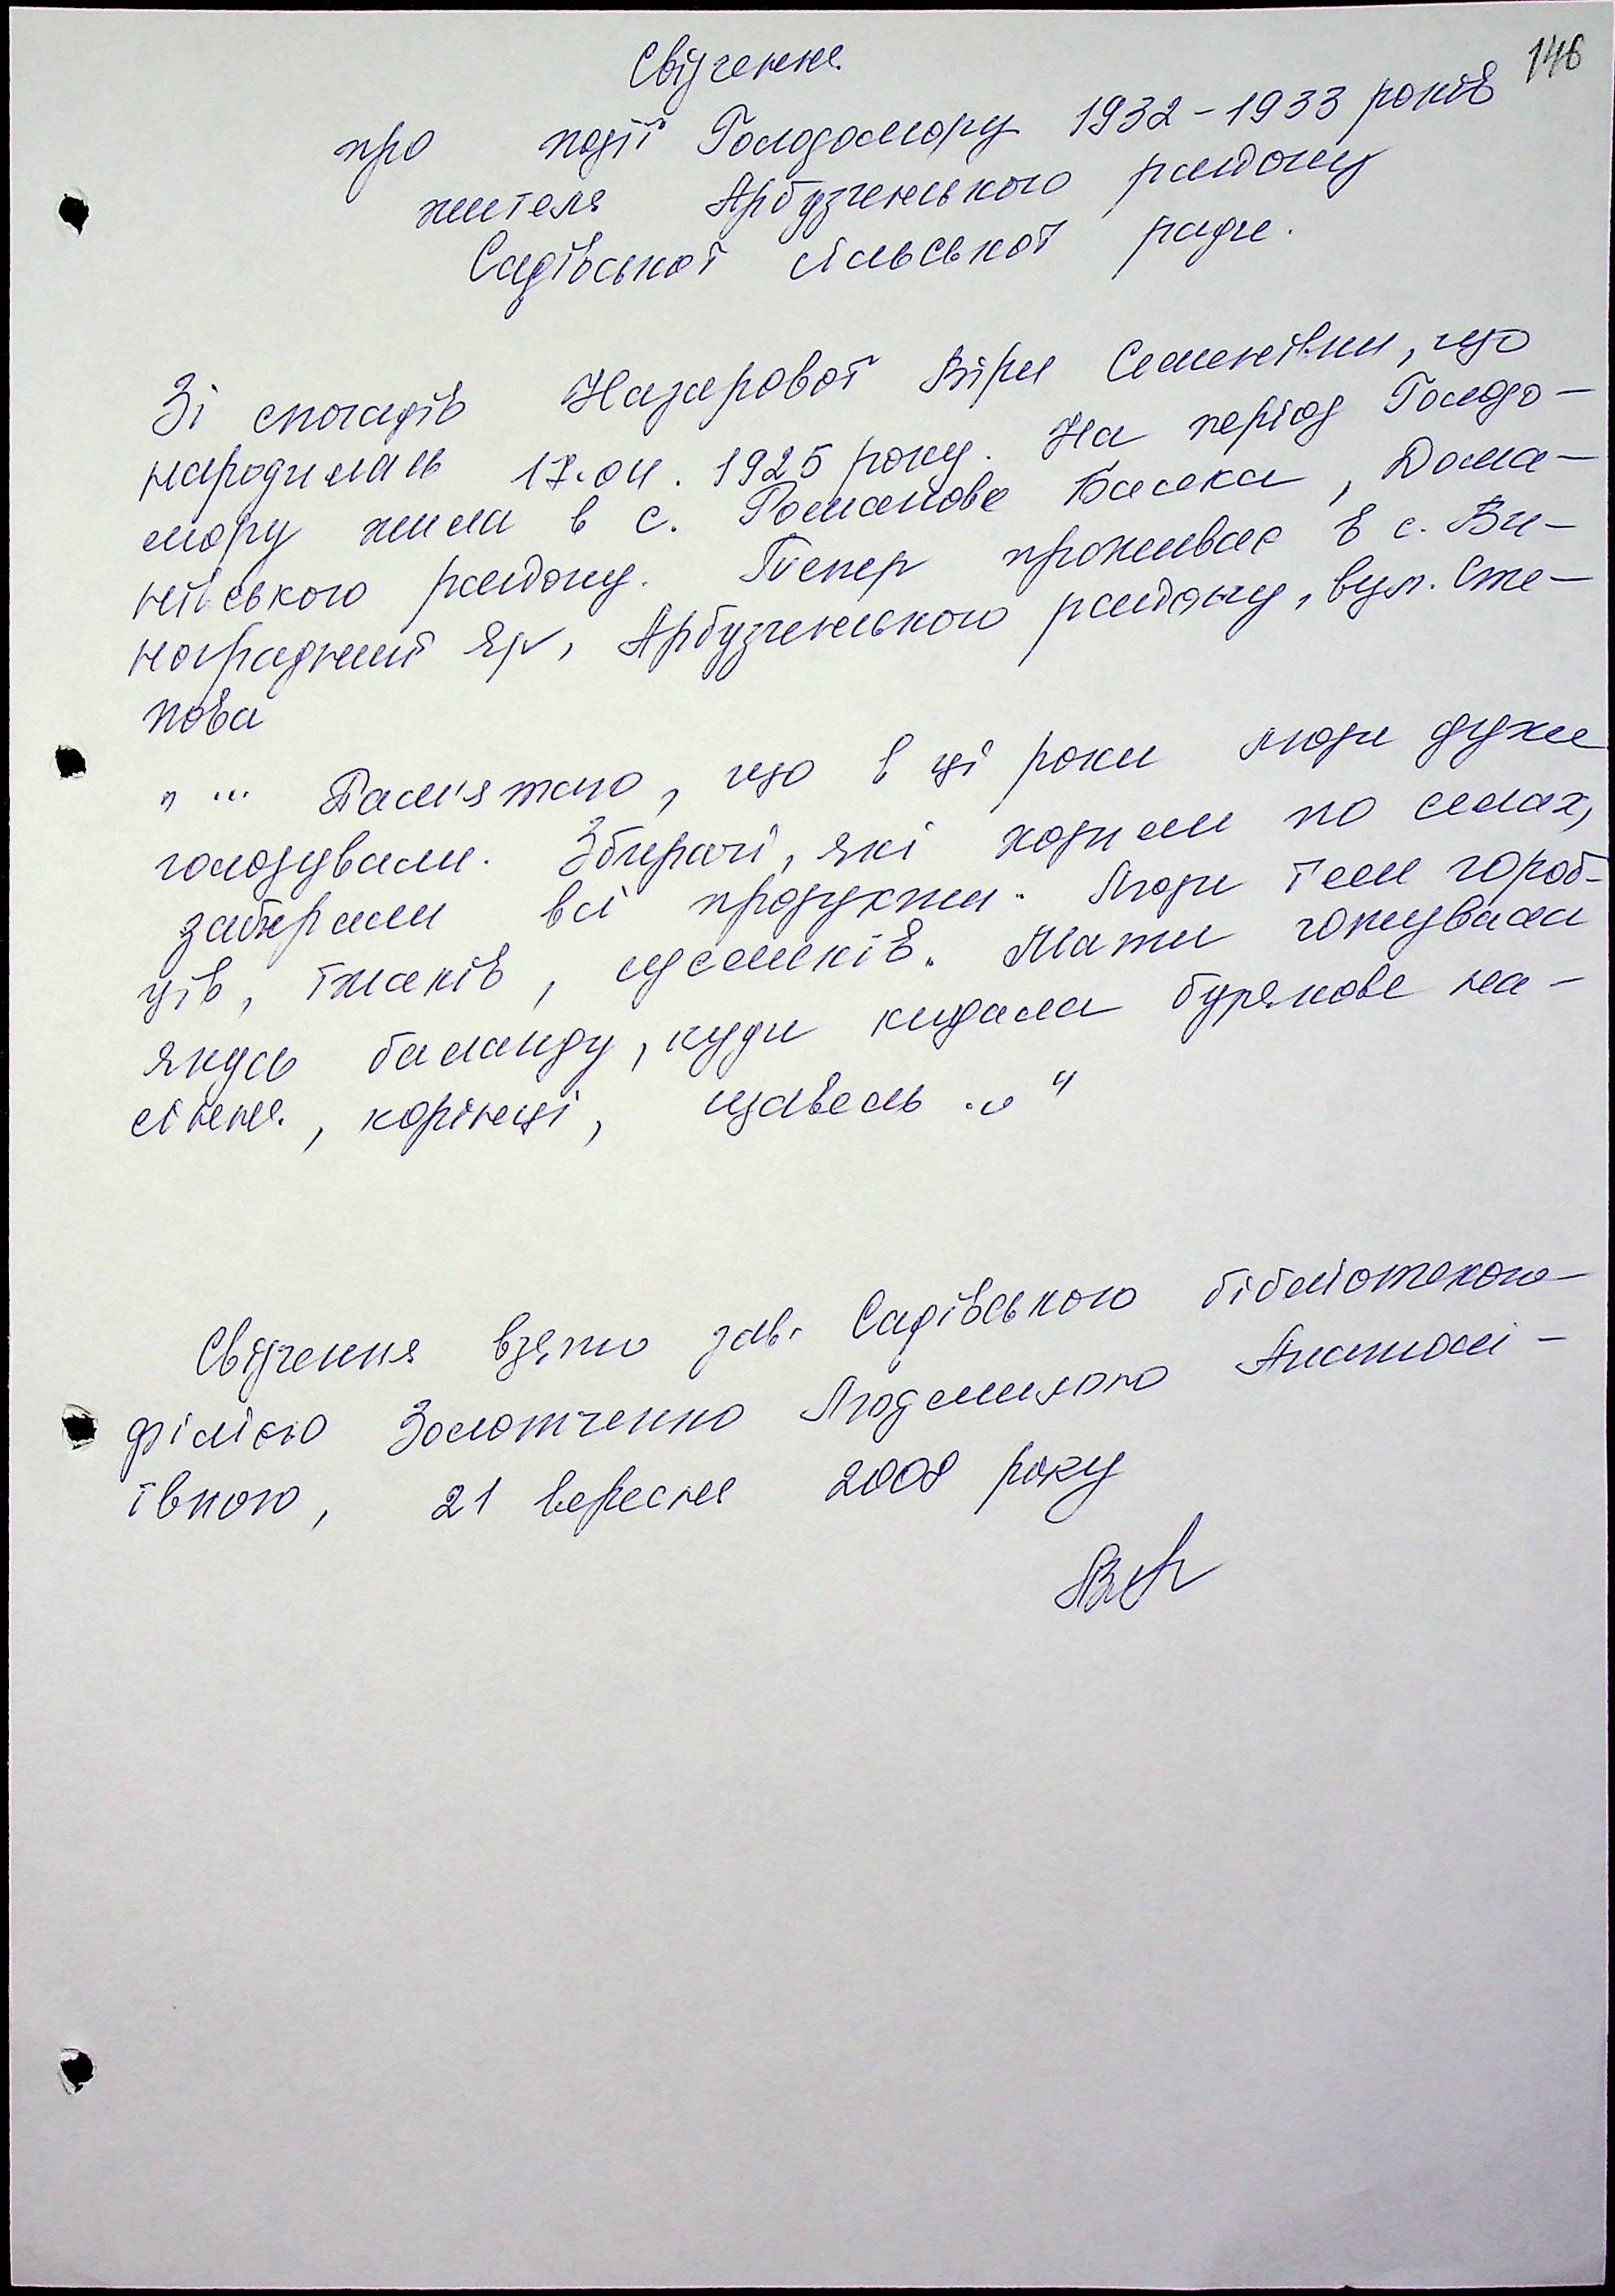 146
Свідчення
про події Голодомору 1932-1933 років
жителя Арбузинського району
Садівської сільської ради.
Зі спогадів Назарової Віри Семенівни, що
народилась 17.04.1925 року. На період Голодо-
мору жила в с. Романове Балка, Дома-
нівського району. Тепер проживає в с. Ви-
ноградний Яр, Арбузинського району, вул. Сте-
пова
"... Пам'ятаю, що в ці роки люди дуже
голодували. Збирачі, які ходили по селах,
забирали всі продукти. Люди їли гороб-
ців, їжаків, цуценків. Мати готувала
якусь баланду, куди кидала бурякове на-
сіння, корінці, щавель ..."
Свідчення взято зав. Садівського бібліотекою-
філією Золотченко Людмилою Анатолі-
ївною, 21 вересня 2008 року